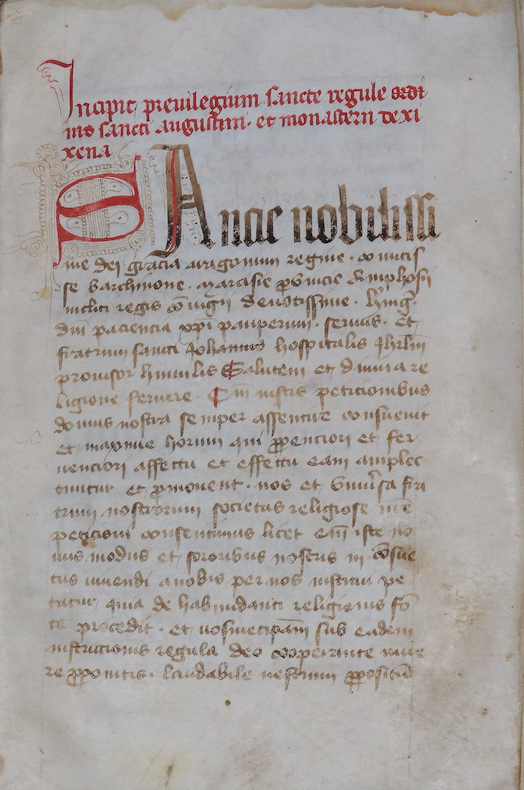 Incipit preuilegium sancte regule ordi
nis sancti augustini · et monasterii de xi
xena
SAncie nobilissi
me dei gracia aragonum regine · comitis
se barchinone · marcisie prouincie Ampulsi
incliti regis coniugii deuotissime ·
dni paciencia xpi pauperum · seruus · Et
fratrum sancti Johannis hospitalis Jhrlm
prouisor humilis Salutem et diuina re
ligione feruere Cum iustis peticionibus
domus nostra semper assentire consueuit
et maxime horum qui propenciori et fer
uenciori affectu et effectu eam amplec
tuntur et promouent · nos et vniuersa fra
trum nostrorum societas religiose
peticioni consentimus licet enim iste no
uus modus et sororibus nostris in consue
tus uiuendi a nobis per uos institui pe
tatur · quia de habundanti religionis fon
te procedit · et uosmetipsam sub eadem
instrucionis regula deo cooperante uiue
re proponitis · laudabile uestrum propositum